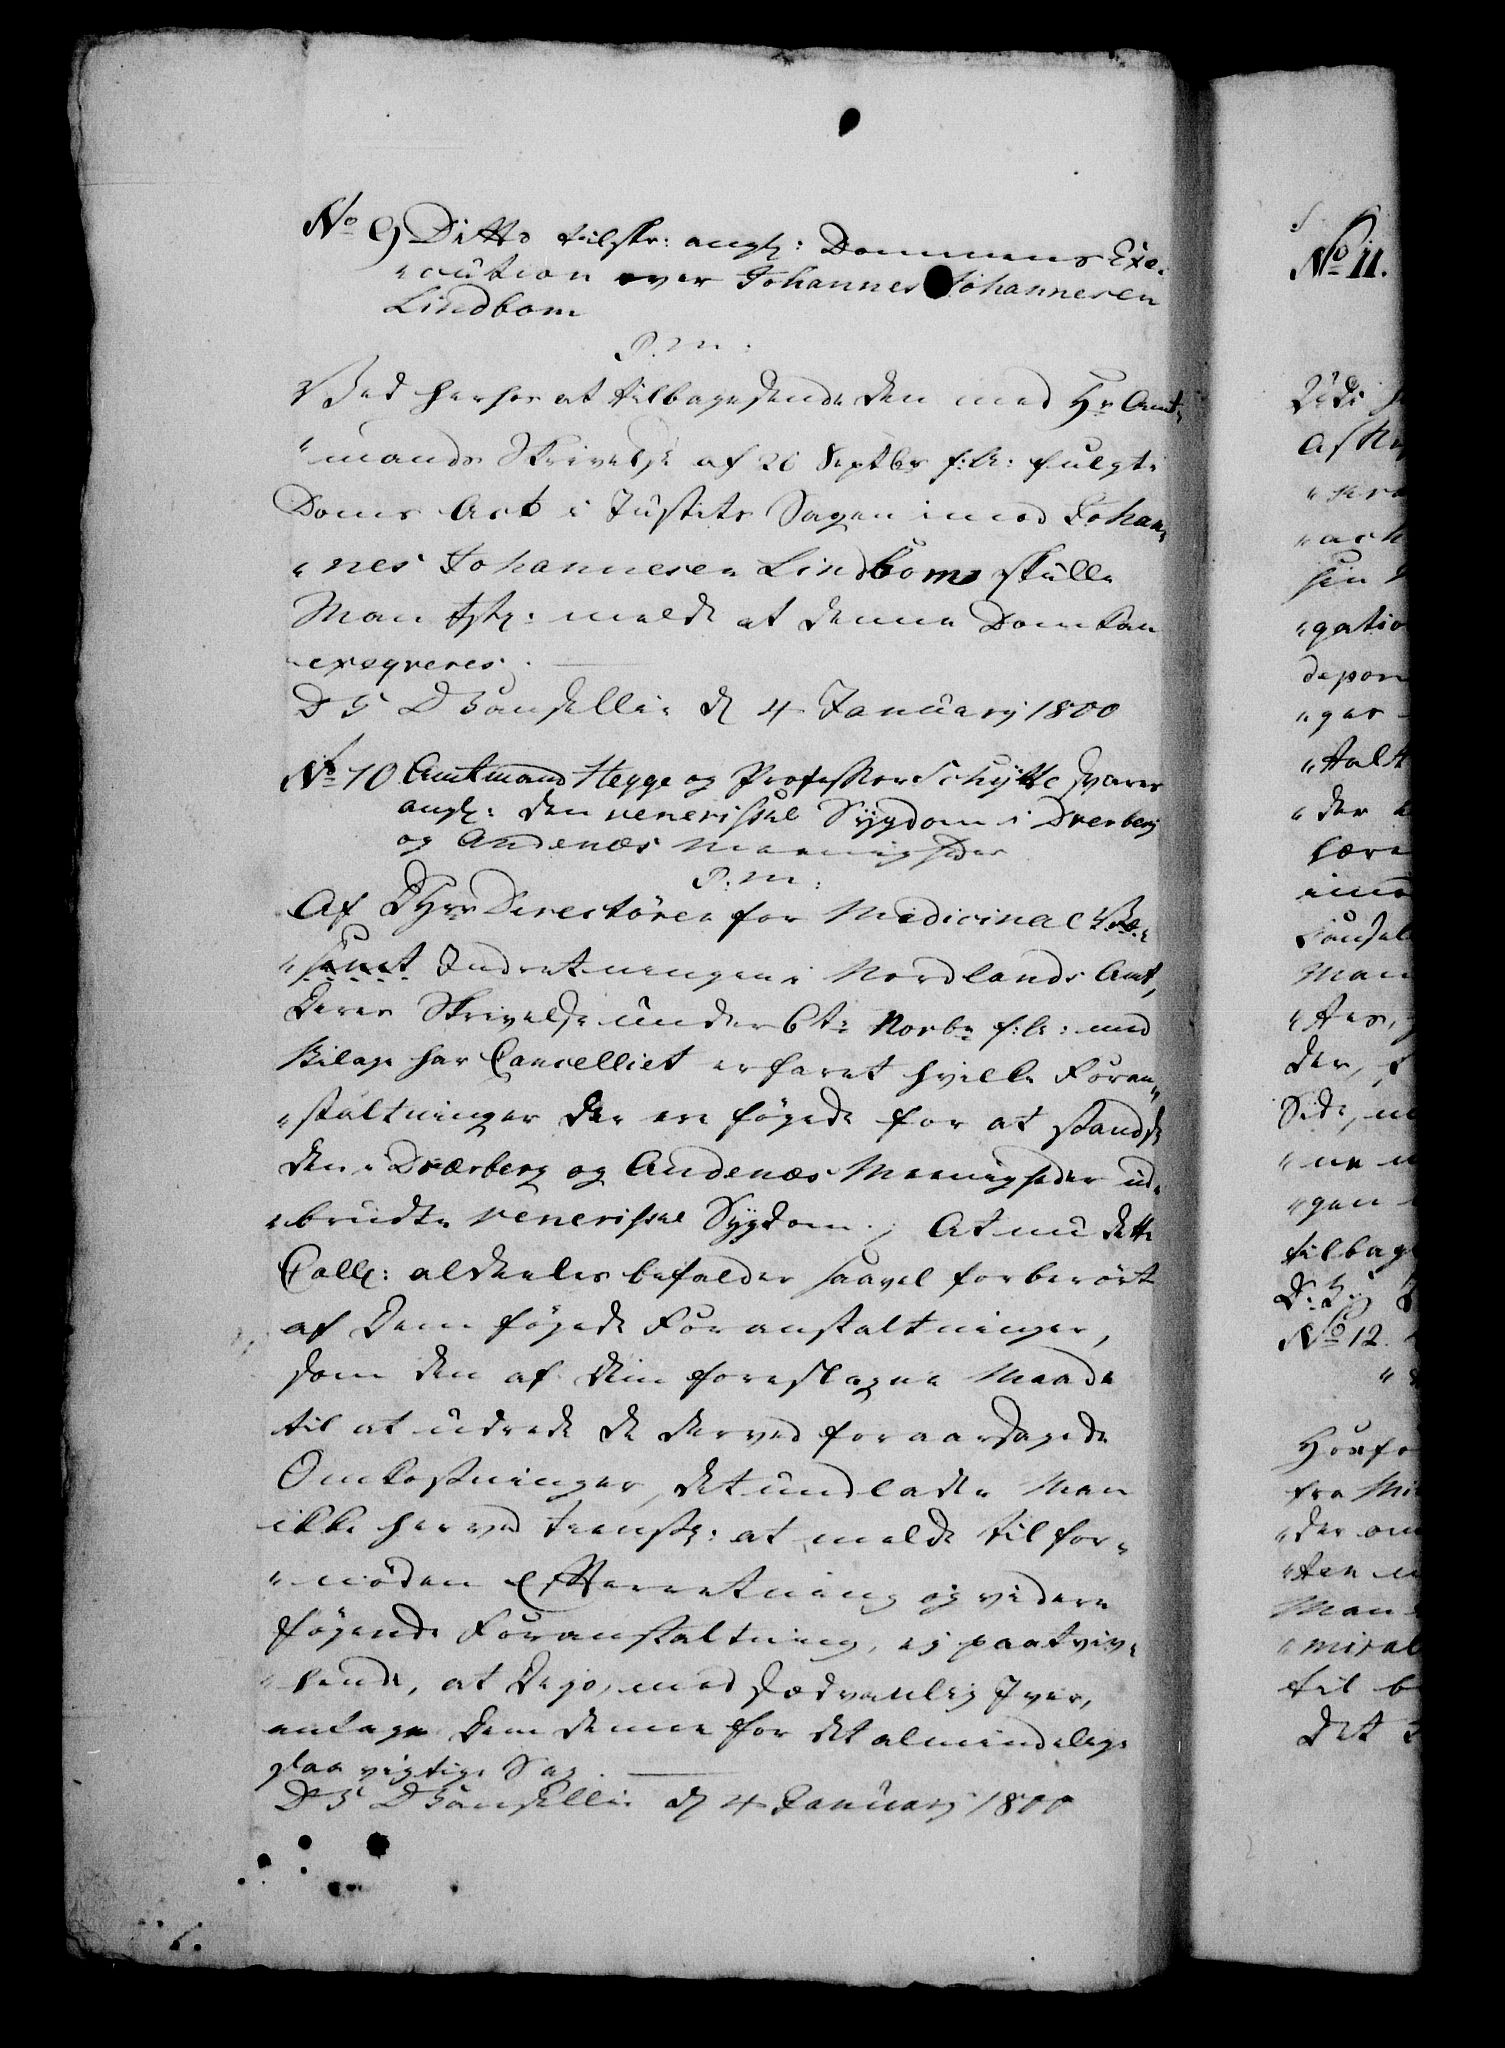 No 9 Ditto tilskr: angl: Dommens Exe-
"cution over Johannes Johannesen
Lindbom
P. M:
Ved herhos at tilbagesende den med Hr Amt-
"mands Skrivelse af 26 Septbr f: A: fulgte
Doms Act i Justits Sagen imod Johan-
"nes Johannesen Lindbom skulle
Man tstl: melde at denne Dom kan
exeqveres.
D D Cancellie d 4 Januarij 1800
No 10 Amtmand Hegge og Professor Schytte svares
angl: den veneriske Sygdom i Dverberg
og Andenæs Meenigheder
P: M:
Af DHrr Directörer for Medicinal
Indretningen i Nordlands Amt,
Deres Skrivelse under 6te Novbr f: A: med
Bilage har Cancelliet erfaret hvilke Foran-
"staltninger der ere föjede for at standse
den i Dværberg og Andenæs Meenigheder ud-
"brudte veneriske Sygdom; At nu dette
Coll: aldeeles befalder saavel forberört
af Dem föjede Foranstaltninger,
som den af dem foreslagne Maade
til at udrede de derved foraarsagede
Omkostninger, det undlader Man
ikke herved tienstl: at melde til for-
"nöden Efterretning og videre
föjende Foranstaltning, ej paatviv-
"lende, at De jo, med sædvanlig Iver,
antage Dem denne for det almindelige
saa vigtige Sag.
D D Cancellie d 4 Januarij 1800
No 11.
"gatio
depon
"ger
"der
imo
Man
der,
Side,
"gen
tilbage
No 12.
fra
"der om
Man
til
Det